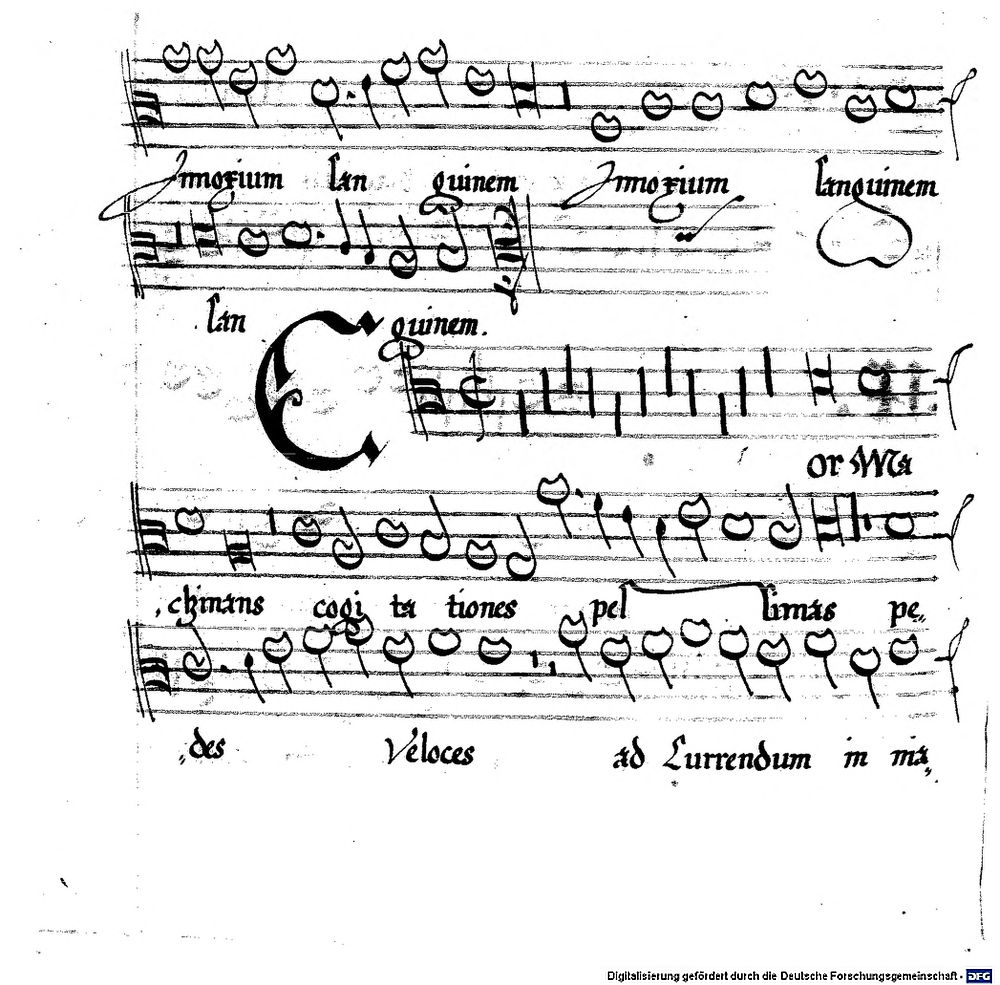 Innoxium san guinem Innoxium sanguinem
san guinem.
Cor Ma
chinans cogi ta tiones pes simas pe
des Veloces ad Currendum in ma
Digitalisierung gefördert durch die Deutsche Forschungsgemeinschaft - DFG